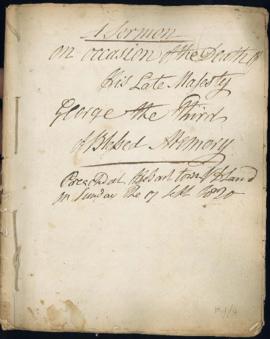 A Sermon
on occasion of the Death of
His Late Majesty
George the Third
of Blessed Memory
Preached at Hobart town
on Sunday the 17 Sept 1820